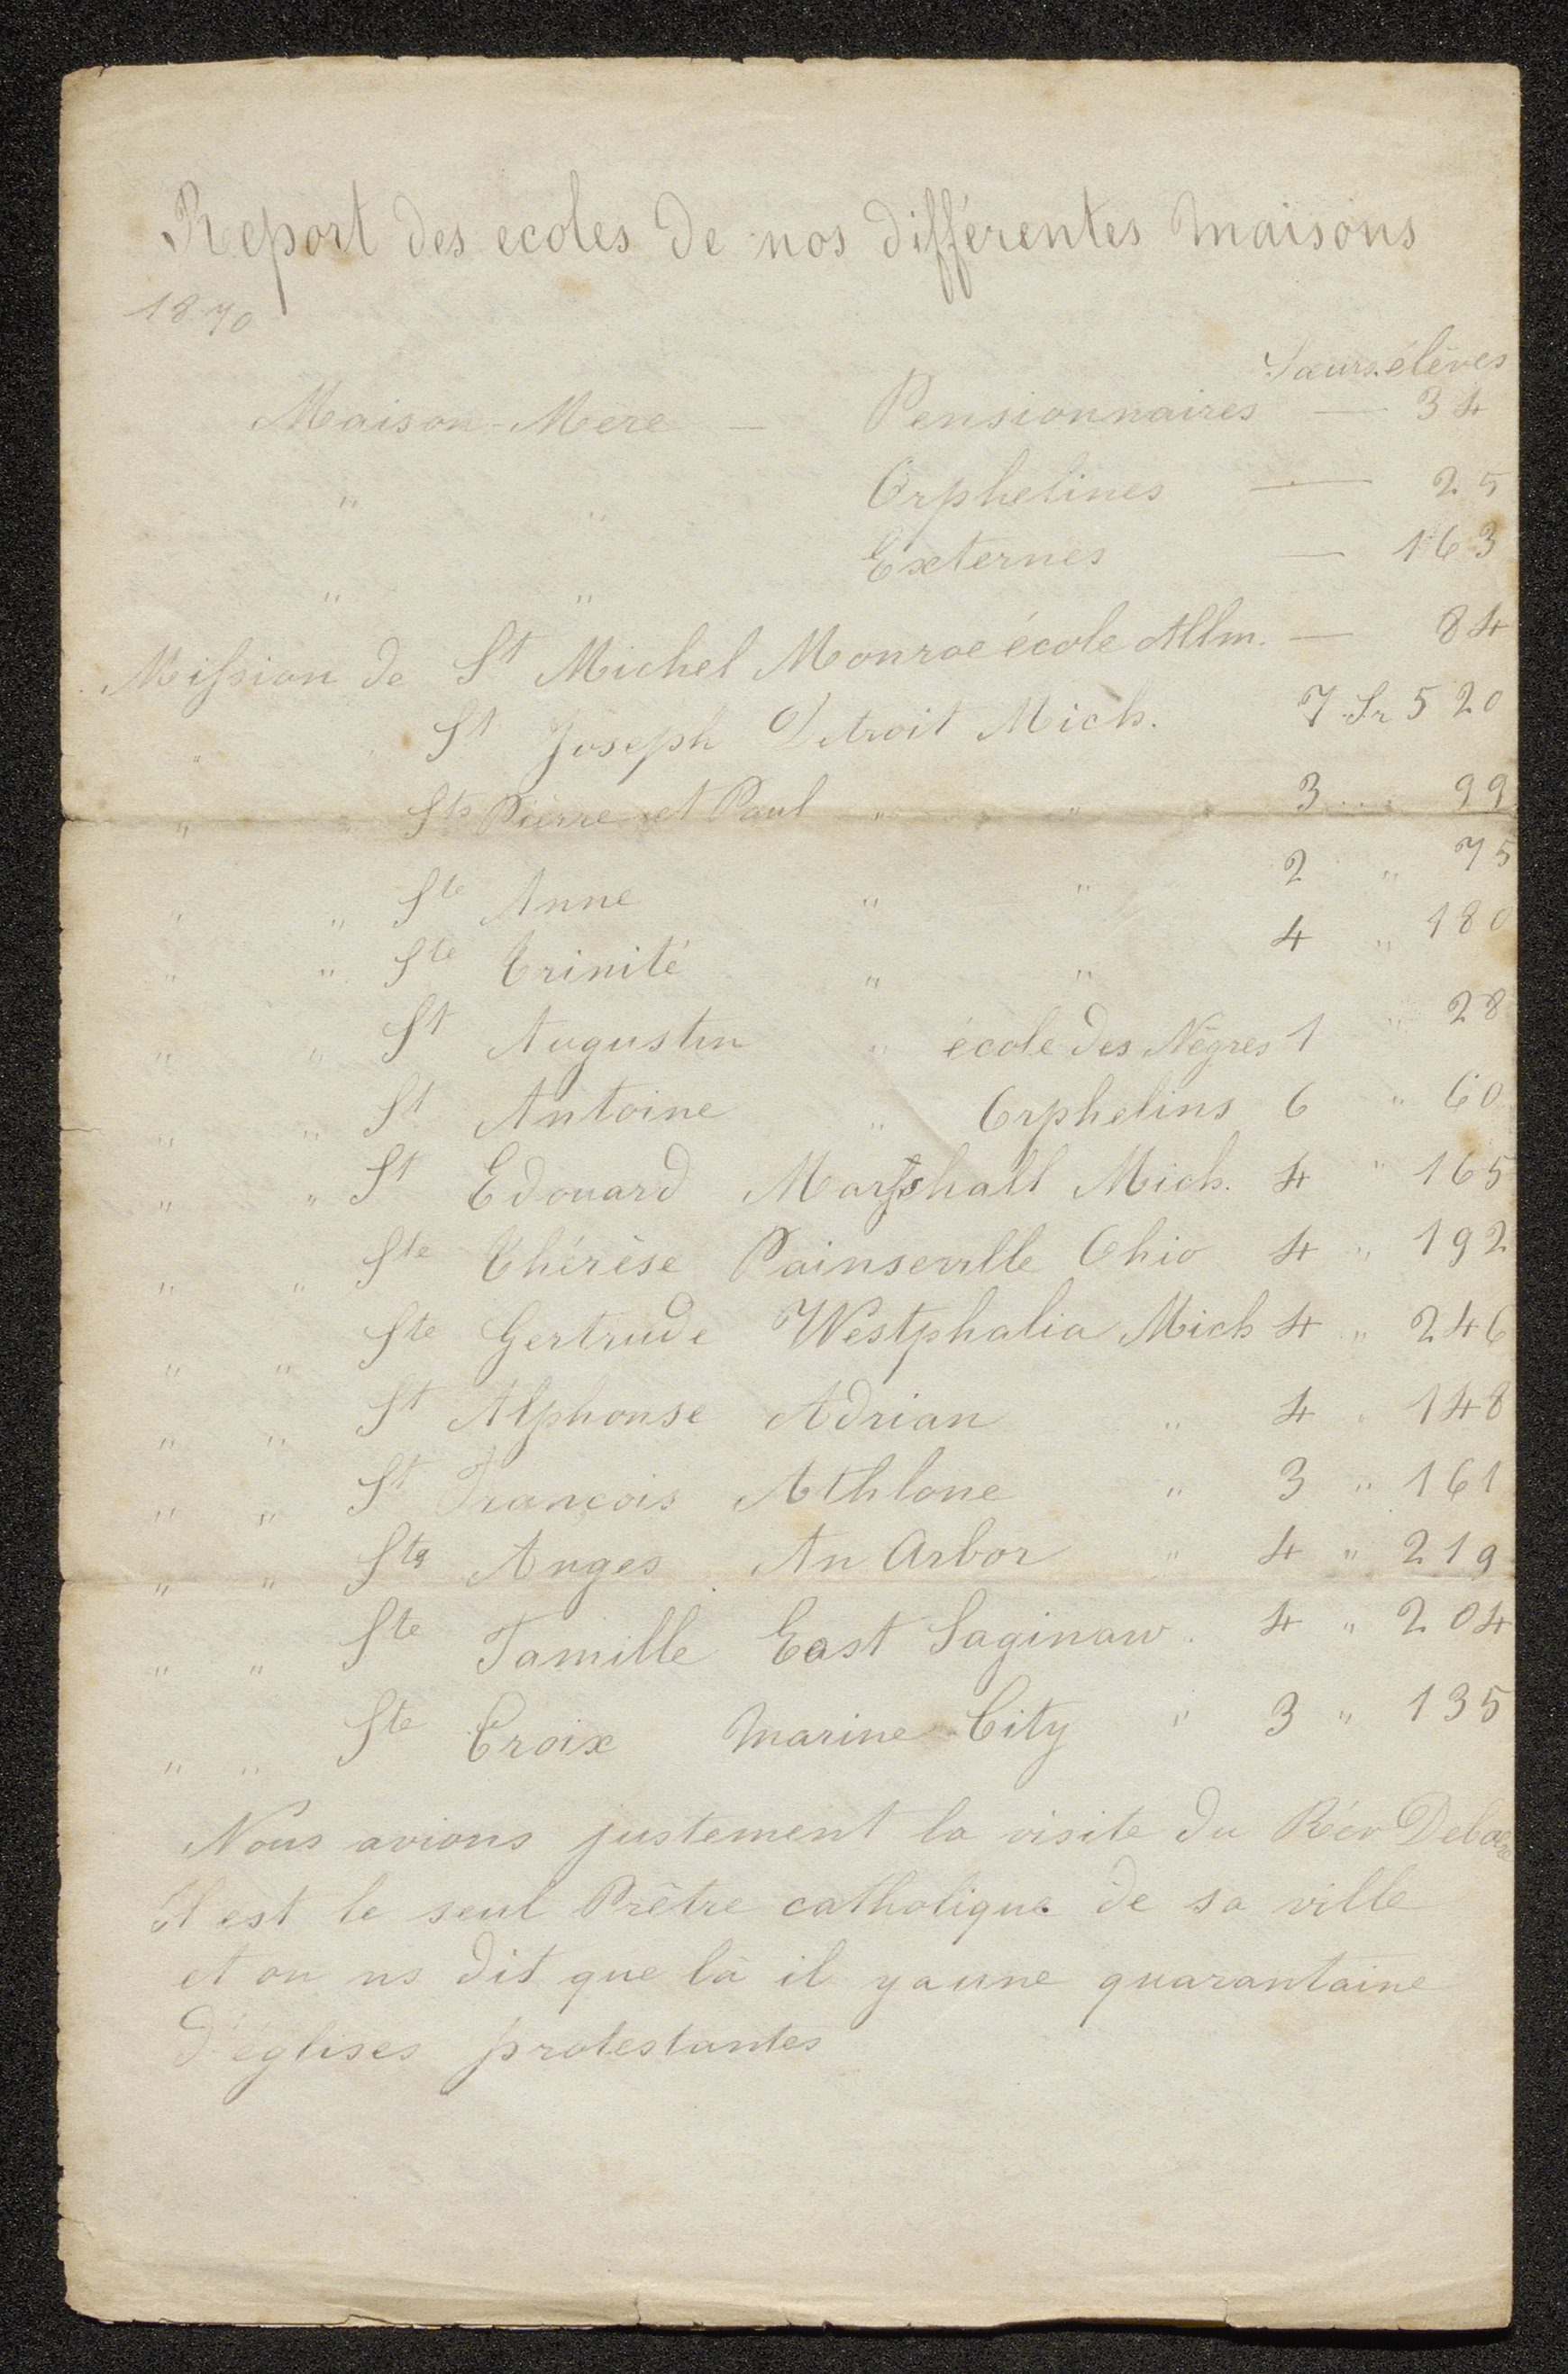 Report des ecoles de nos différentes maisons
1870
Sœurs. élèves
Maison-Mère — Pensionnaires — 34
" " Orphelines — 25
" " Externes — 163
Mission de St Michel Monroe école Allm. — 84
" " St Joseph Detroit Mich. 7 Sr 520
" " Sts Pierre et Paul " " 3 " 99
" " Ste Anne " " 2 " 75
" " Ste Trinité " " 4 " 180
" " St Augustin " école des Nègres 1 " 28
" " St Antoine " Orphelins 6 " 60
" " St Edouard Marshall Mich. 4 " 165
" " Ste Thérèse Painseville Ohio 4 " 192
" " Ste Gertrude Westphalia Mich 4 " 246
" " St Alphonse Adrian " 4 " 148
" " St François Athlone " 3 " 161
" " Sts Anges An Arbor " 4 " 219
" " Ste Famille East Saginaw " 4 " 204
" " Ste Croix Marine City " 3 " 135
Nous avions justement la visite du Rév
Il est le seul Prêtre catholique de sa ville
et on ns dit que là il y a une quarantaine
d'églises protestantes